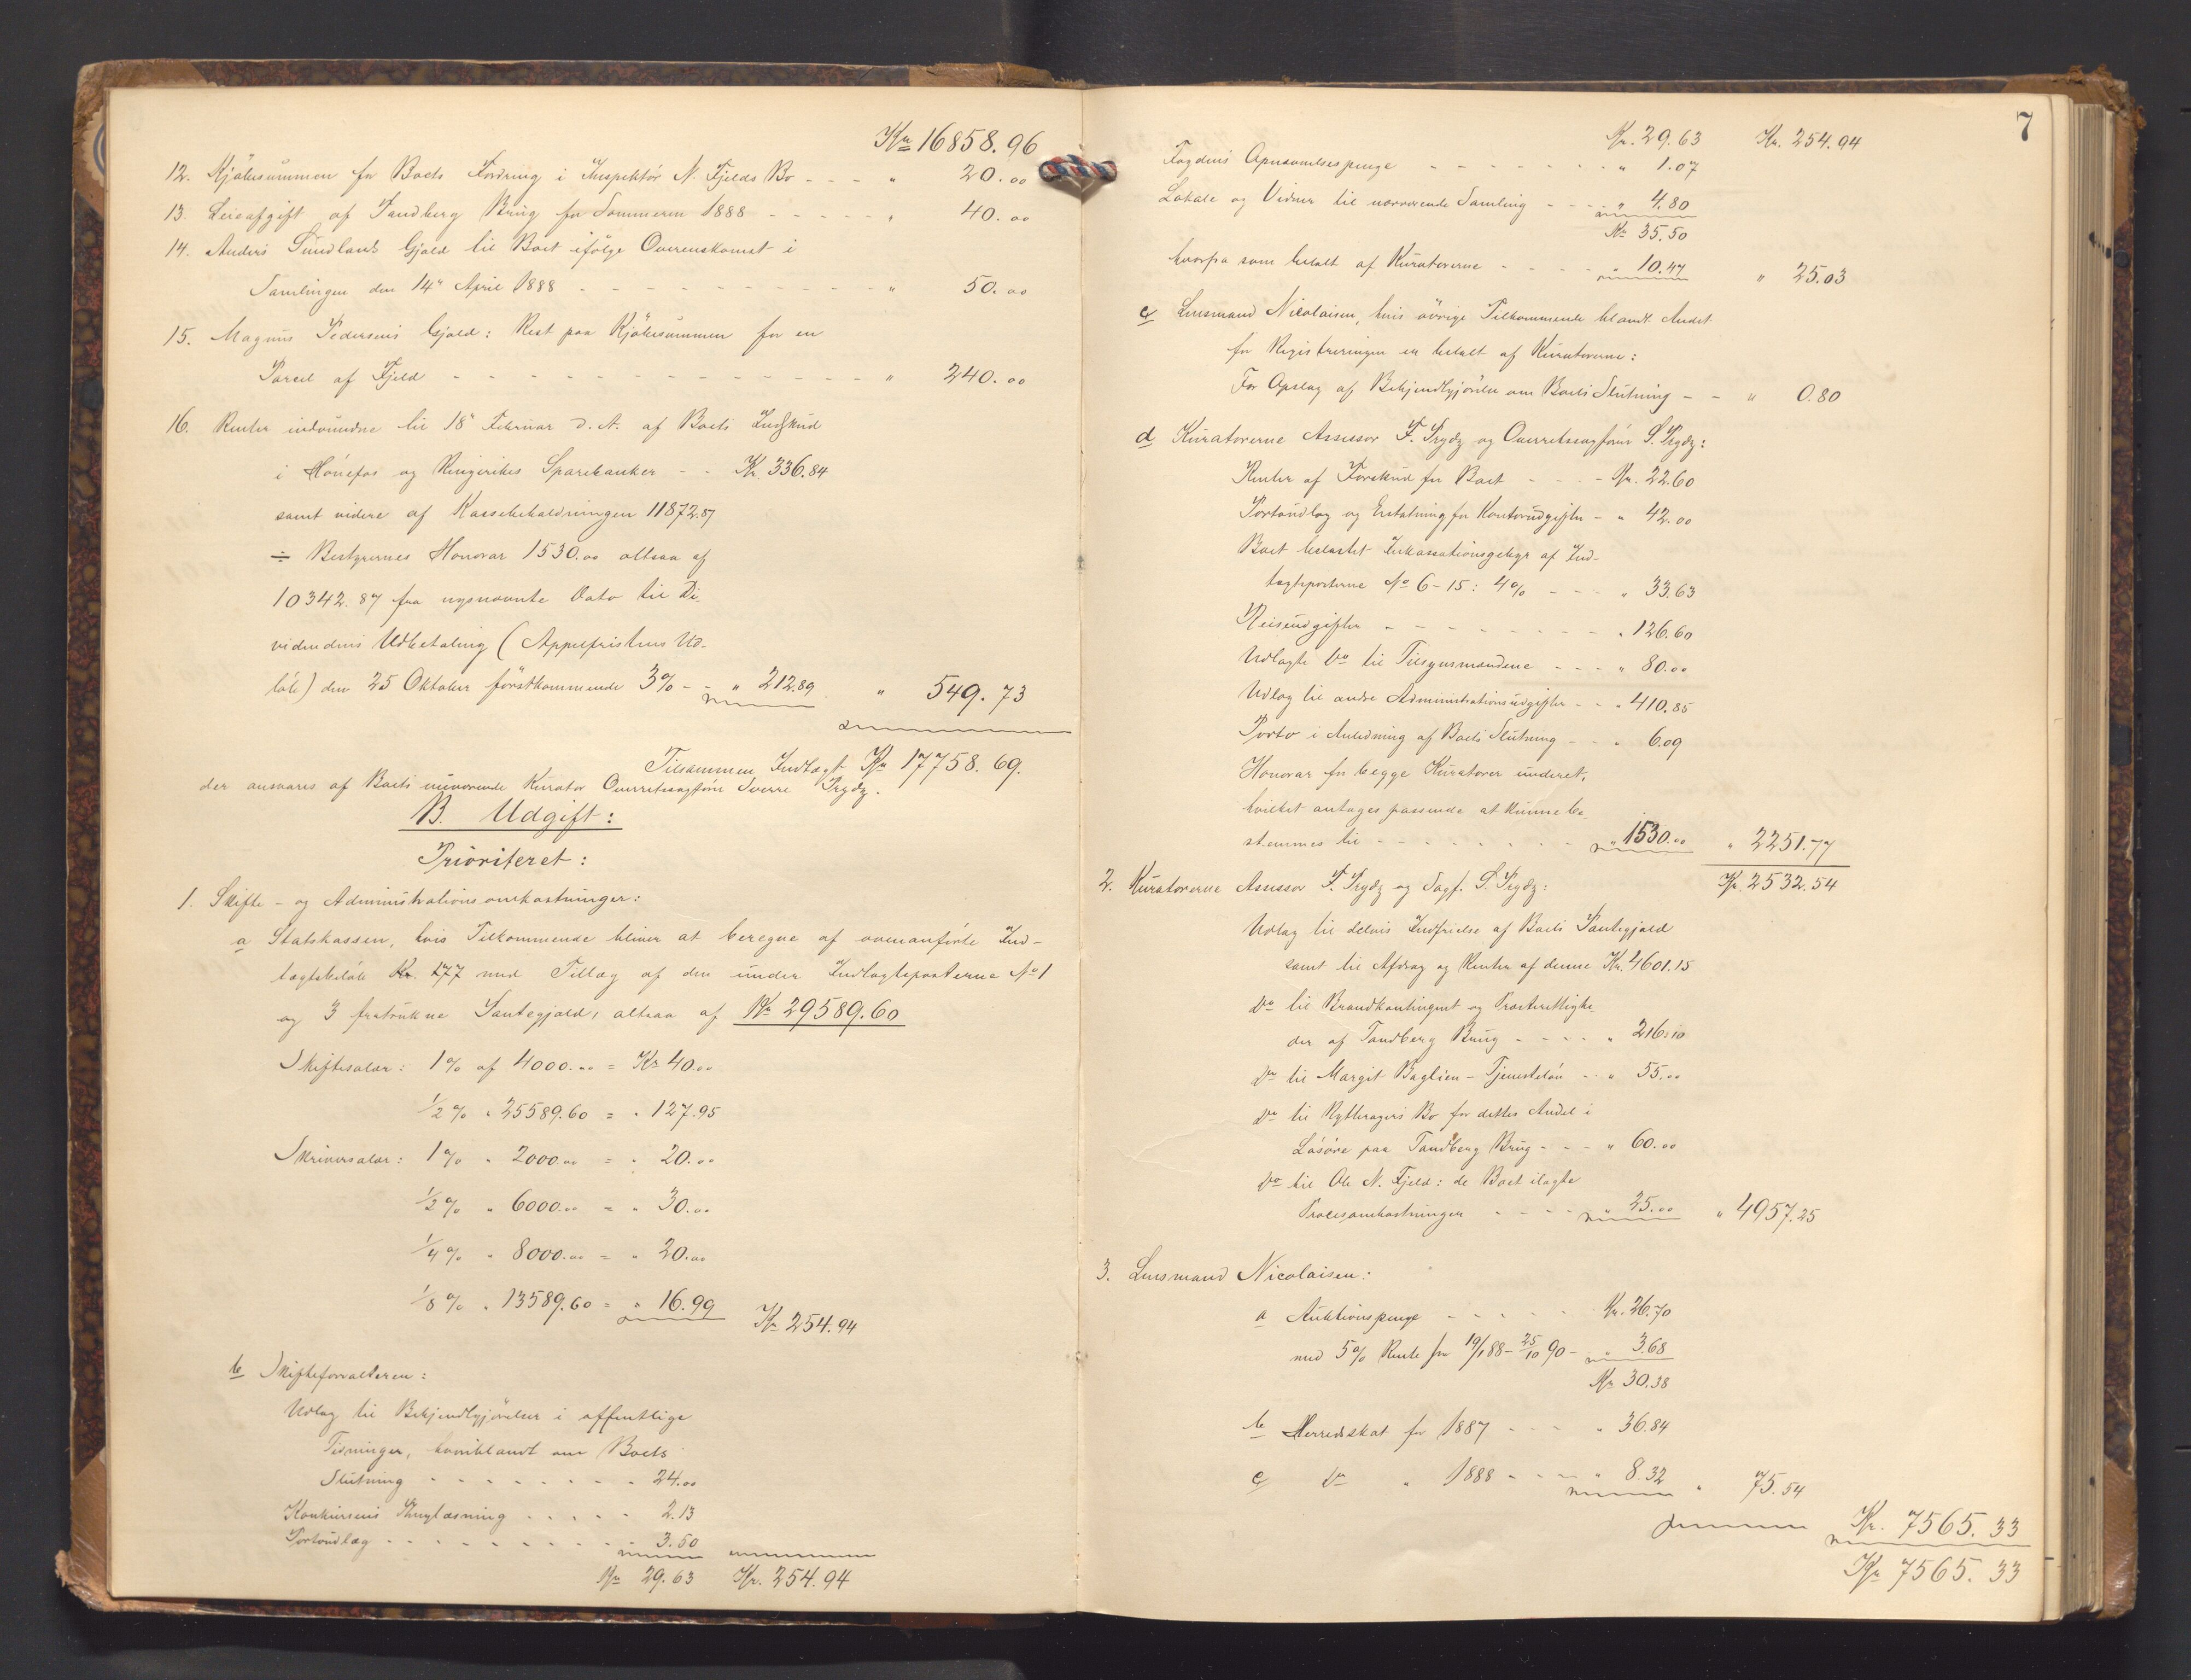 Kr 16858.96
12. Kjöbesummen for Boets Fordring i Inspektör N. Fjelds Bo - - - " 20.00
13. Leieafgift af Tandberg Brug for Sommeren 1888 - - - - - " 40.00
14. Anders Sundlands Gjæld til Boet ifölge Overenskomst i
Samlingen den 14de April 1888 - - - - - - - - - - - " 50.00
15. Magnus Pedersens Gjæld: Rest paa Kjöbesummen for en
Parcel af Fjeld - - - - - - - - - - - - - - - " 240.00
16. Renter indvundne til 18de Februar d. A. af Boets Indskud
i Hönefos og Ringerikes Sparebanker - - Kr. 336.84
samt videre af Kassebeholdningen 11872.87
÷ Bestyrernes Honorar 1530.00 altsaa af
10342.87 fra nysnævnte Dato til Di
videndens Udbetaling (Appelfristens Ud-
löb) den 25 Oktober förstkommende 3% - - " 212.89 " 549.73
Tilsammen Indtægt Kr 17758.69.
der ansvares af Boets nuværende Kurator Overretssagförer Sverre Trydz.
B. Udgift:
Prioriteret:
1. Skifte- og Administrationsomkostninger:
a Statskassen, hvis Tilkommende bliver at beregne af ovenanförte Ind-
tægtsbelöb Kr. 177 med Tillæg af den under Indtægtsposterne No 1
og 3 fratrukne Pantegjæld, altsaa af Kr 29589.60
Skiftesalær: 1% af 4000.00 = Kr 40.00
1/2% " 25589.60 = " 127.95
Skriversalær: 1% " 2000.00 = " 20.00
1/2% " 6000.00 = " 30.00
1/4% " 8000.00 = " 20.00
1/8% " 13589.60 = " 16.99 Kr 254.94
b Skifteforvalteren:
Udlæg til Bekjendtgjörelser i offentlige
Tidninger, hvoriblandt om Boets
Slutning - - - - - - - - 24.00
Konkursens Thinglæsning - - - - - 2.13
Portoudlæg - - - - - - - - - - 3.50
Kr 29.63 Kr. 254.94
7
Kr. 29.63 Kr. 254.94
Fogdens Opnævnelsespenge - - - - - - - " 1.07
Lokale og Vidner til nærværende Samling - - - " 4.80
Kr 35.50
hvorfra som betalt af Kuratorerne - - - - " 10.47 " 25.03
c Lensmand Nicolaisen, hvis övrige Tilkommende blandt Andet
for Registreringen er betalt af Kuratorerne:
For Opslag af Bekjendtgjörelse om Boets Slutning - - " 0.80
d Kuratorerne Assessor F. Trydz og Overretssagförer S. Trydz:
Renter af Forskud for Boet - - - - Kr. 22.60
Portoudlæg og Erstatning for Kontorudgifter - " 42.00
Boet belastet Inkassationsgebyr af Ind-
tægtsposterne No 6-15: 4% - - - " 33.63
Reiseudgifter - - - - - - - - " 126.60
Udlagte Do til Tilsynsmændene - - - " 80.00
Udlæg til andre Administrationsudgifter - - " 410.85
Porto i Anledning af Boets Slutning - - " 6.09
Honorar for begge Kuratorer underet,
hvilket antages passende at kunne be
stemmes til - - - - - - - - " 1530.00 " 2251.77
Kr. 2532.54
2. Kuratorerne Assessor F. Trydz og Sagf. S. Trydz:
Udlæg til delvis Indfrielse af Boets Pantegjæld
samt til Afdrag og Renter af denne Kr. 4601.15
Do til Brandkontingent og Prosterettighe
der af Tandberg Brug - - - - " 216.10
Do til Margit Baglien - Tjenestelön - - " 55.00
Do til Rytteragers Bo for dettes Andel i
Lösöre paa Tandberg Brug - - - " 60.00
Do til Ole N. Fjeld: de Boet ilagte
Procesomkostninger - - - - " 25.00 " 4957.25
3. Lensmand Nicolaisen:
a Auktionspenge - - - - - Kr. 26.70
med 5% Rente fra 19/1 88 - 25/10 90 - " 3.68
Kr 30.38
b Herredsskat for 1887 - - - " 36.84
c Do " 1888 - - - " 8.32 " 75.54
Kr. 7565.33
Kr 7565.33